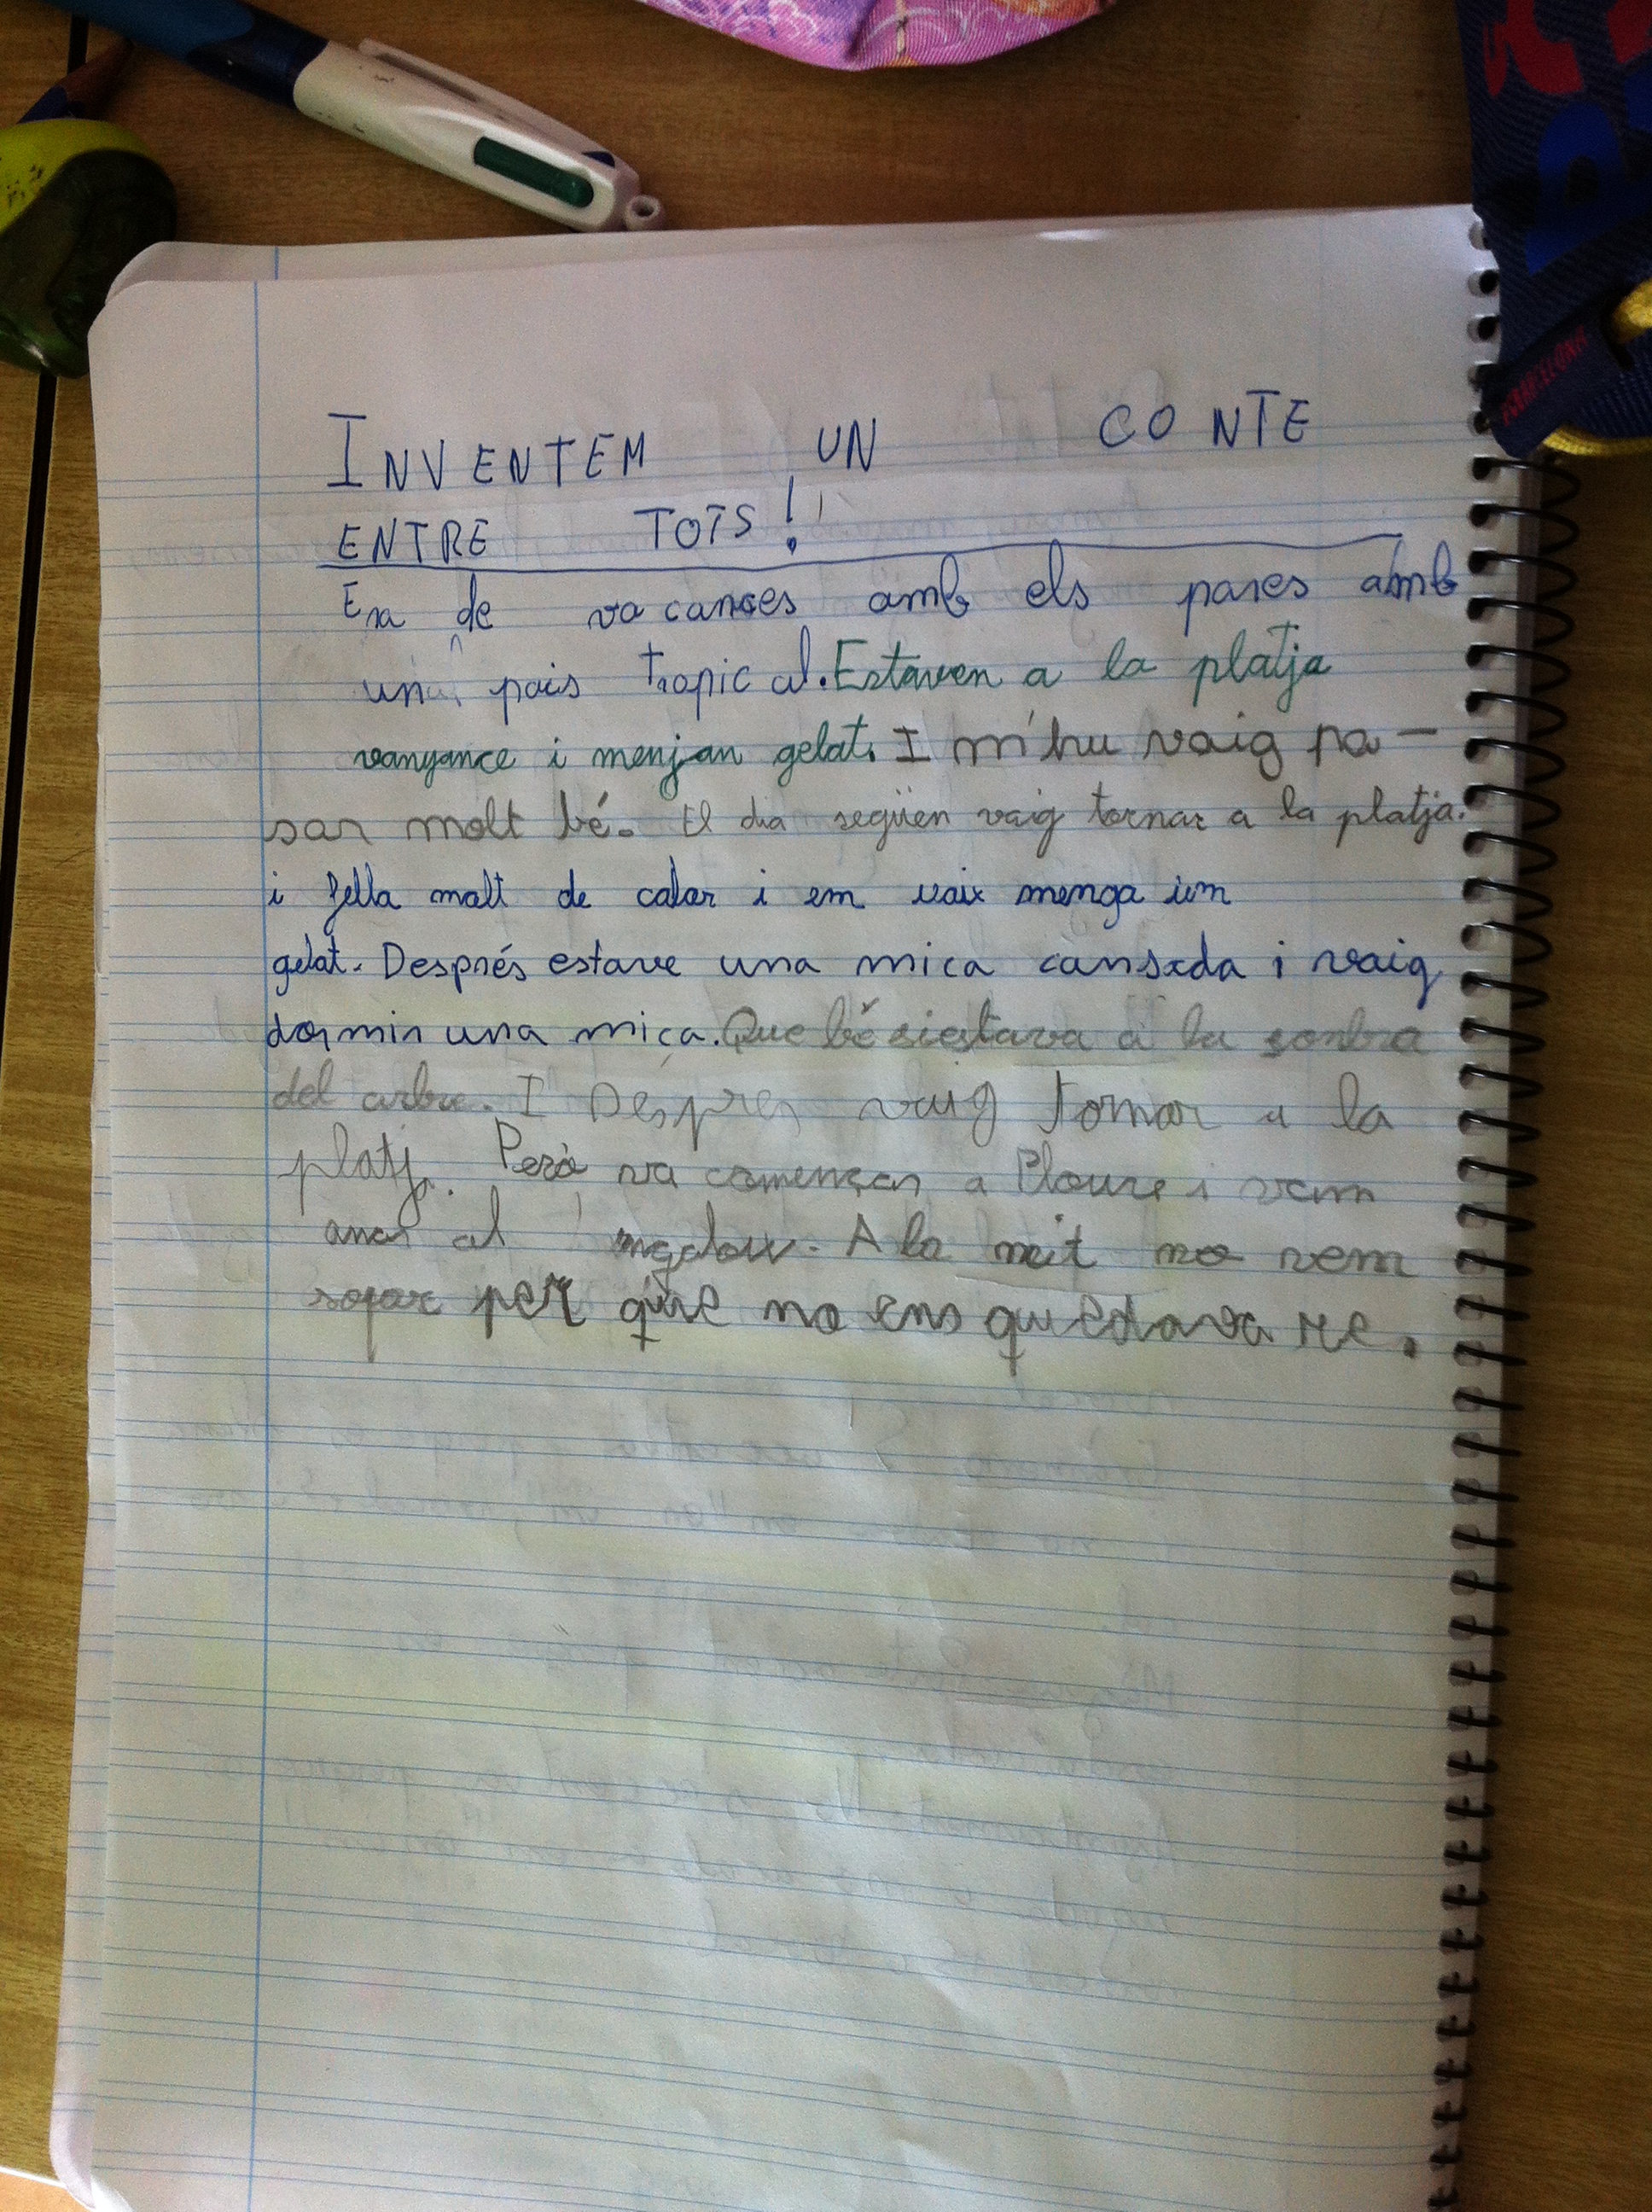 INVENTEM UN CONTE
ENTRE TOTS!
Era de vacances amb els pares amb
un pais tropical. Estaven a la platja
vanyance i menjan gelat. I m'hu vaig pa-
sar molt bé. El dia següen vaig tornar a la platja.
i fella molt de calor i em vaix menga un
gelat. Després estave una mica cansada i vaig
dormir una mica. Que bé siestava a la sonbra
del arbre. I Despres vaig tornar a la
platj. Però va començar a Ploure i vam
anar al . A la nit no vem
sopar per que no ens quedava re.
BARCELONA